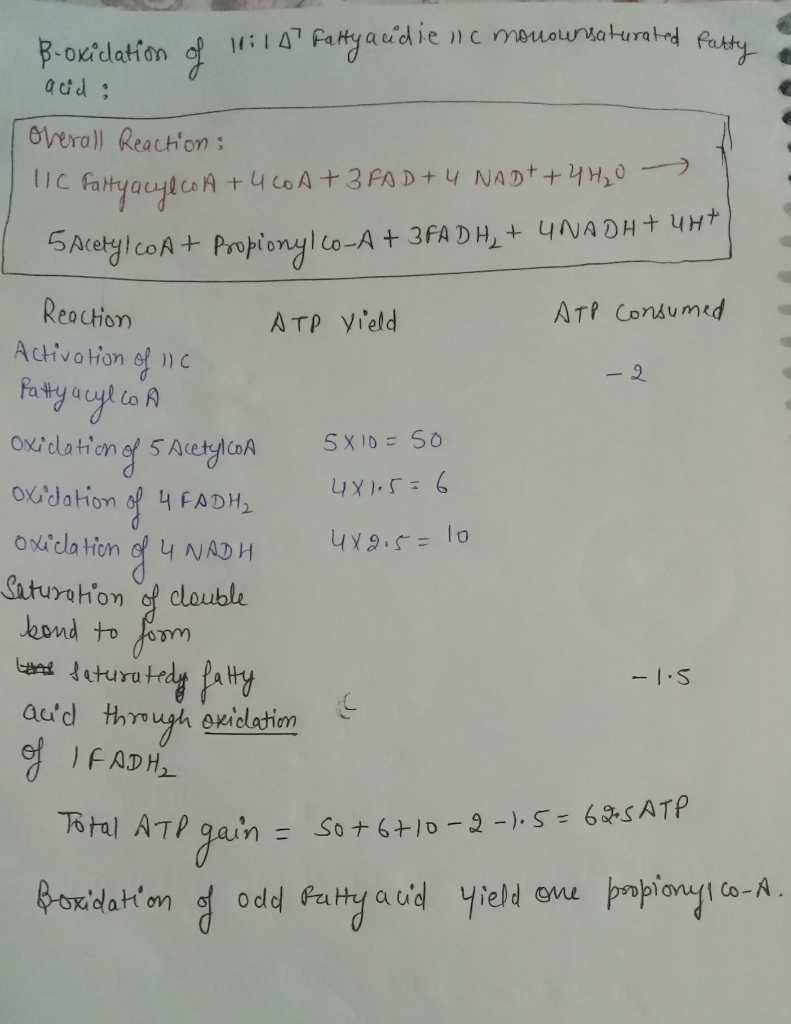 β-oxidation of 11:1 Δ⁷ Fatty acid ie 11 C monounsaturated fatty
acid :
Overall Reaction :
11C Fatty acyl coA + 4 CoA + 3 FAD + 4 NAD⁺ + 4H₂O →
5 Acetyl coA + Propionyl co-A + 3FADH₂ + 4NADH + 4H⁺
Reaction ATP Yield ATP Consumed
Activation of 11 C
Fatty acyl co A - 2
Oxidation of 5 Acetyl CoA 5 X 10 = 50
Oxidation of 4 FADH₂ 4 X 1.5 = 6
Oxidation of 4 NADH 4 X 2.5 = 10
Saturation of double
bond to form
saturated fatty - 1.5
acid through oxidation
of 1 FADH₂
Total ATP gain = 50 + 6 + 10 - 2 - 1.5 = 62.5 ATP
β-oxidation of odd Fatty acid Yield one propionyl co-A.